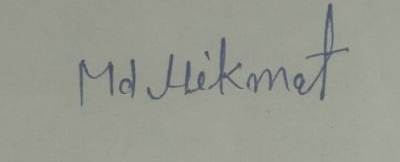 Md Hikmat